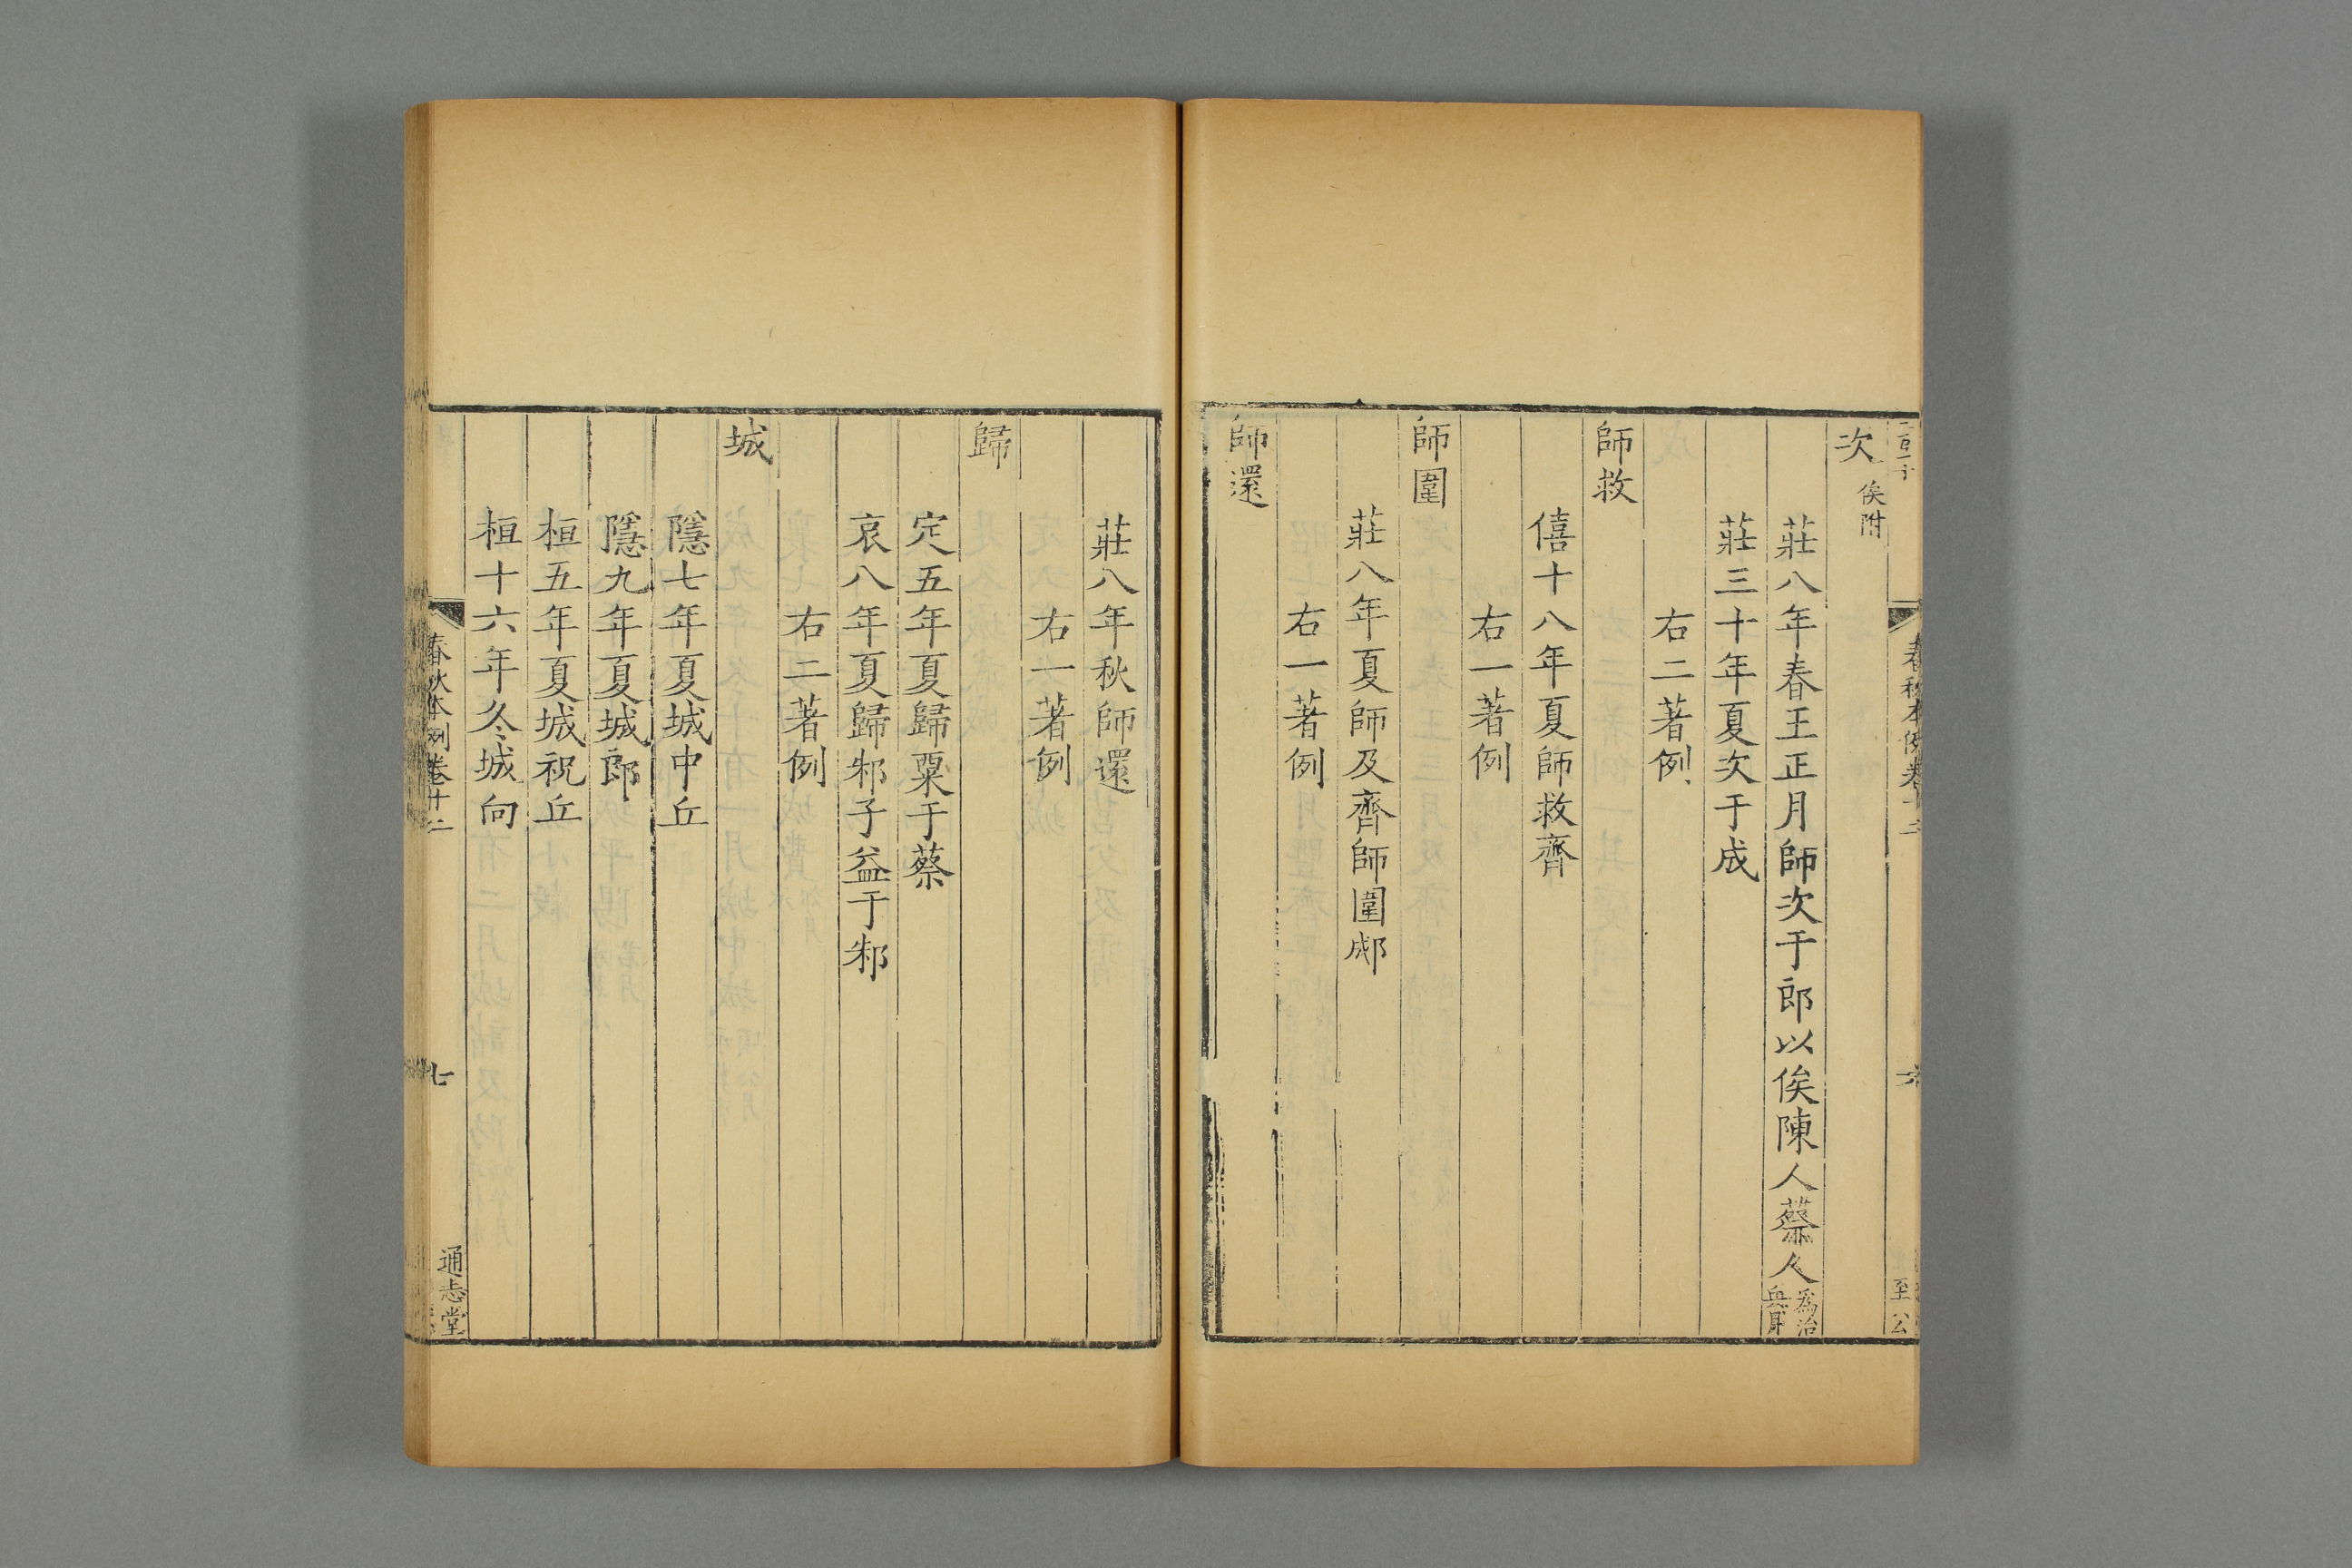 春秋本例卷十二
至公
次 俟附
莊八年春王正月師次于郎以俟陳人蔡人 為治兵月
莊三十年夏次于成
右二著例
師救
僖十八年夏師救齊
右一著例
師圍
莊八年夏師及齊師圍郕
右一著例
師還
莊八年秋師還
右一著例
歸
定五年夏歸粟于蔡
哀八年夏歸邾子益于邾
右二著例
城
隱七年夏城中丘
隱九年夏城郎
桓五年夏城祝丘
桓十六年冬城向
春秋本例卷十二
七
通志堂